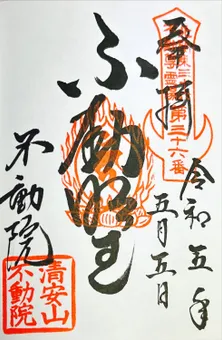 奉拝
第三十六番
令和五年
五月五日
不動明王
不動院
清安山
不動院